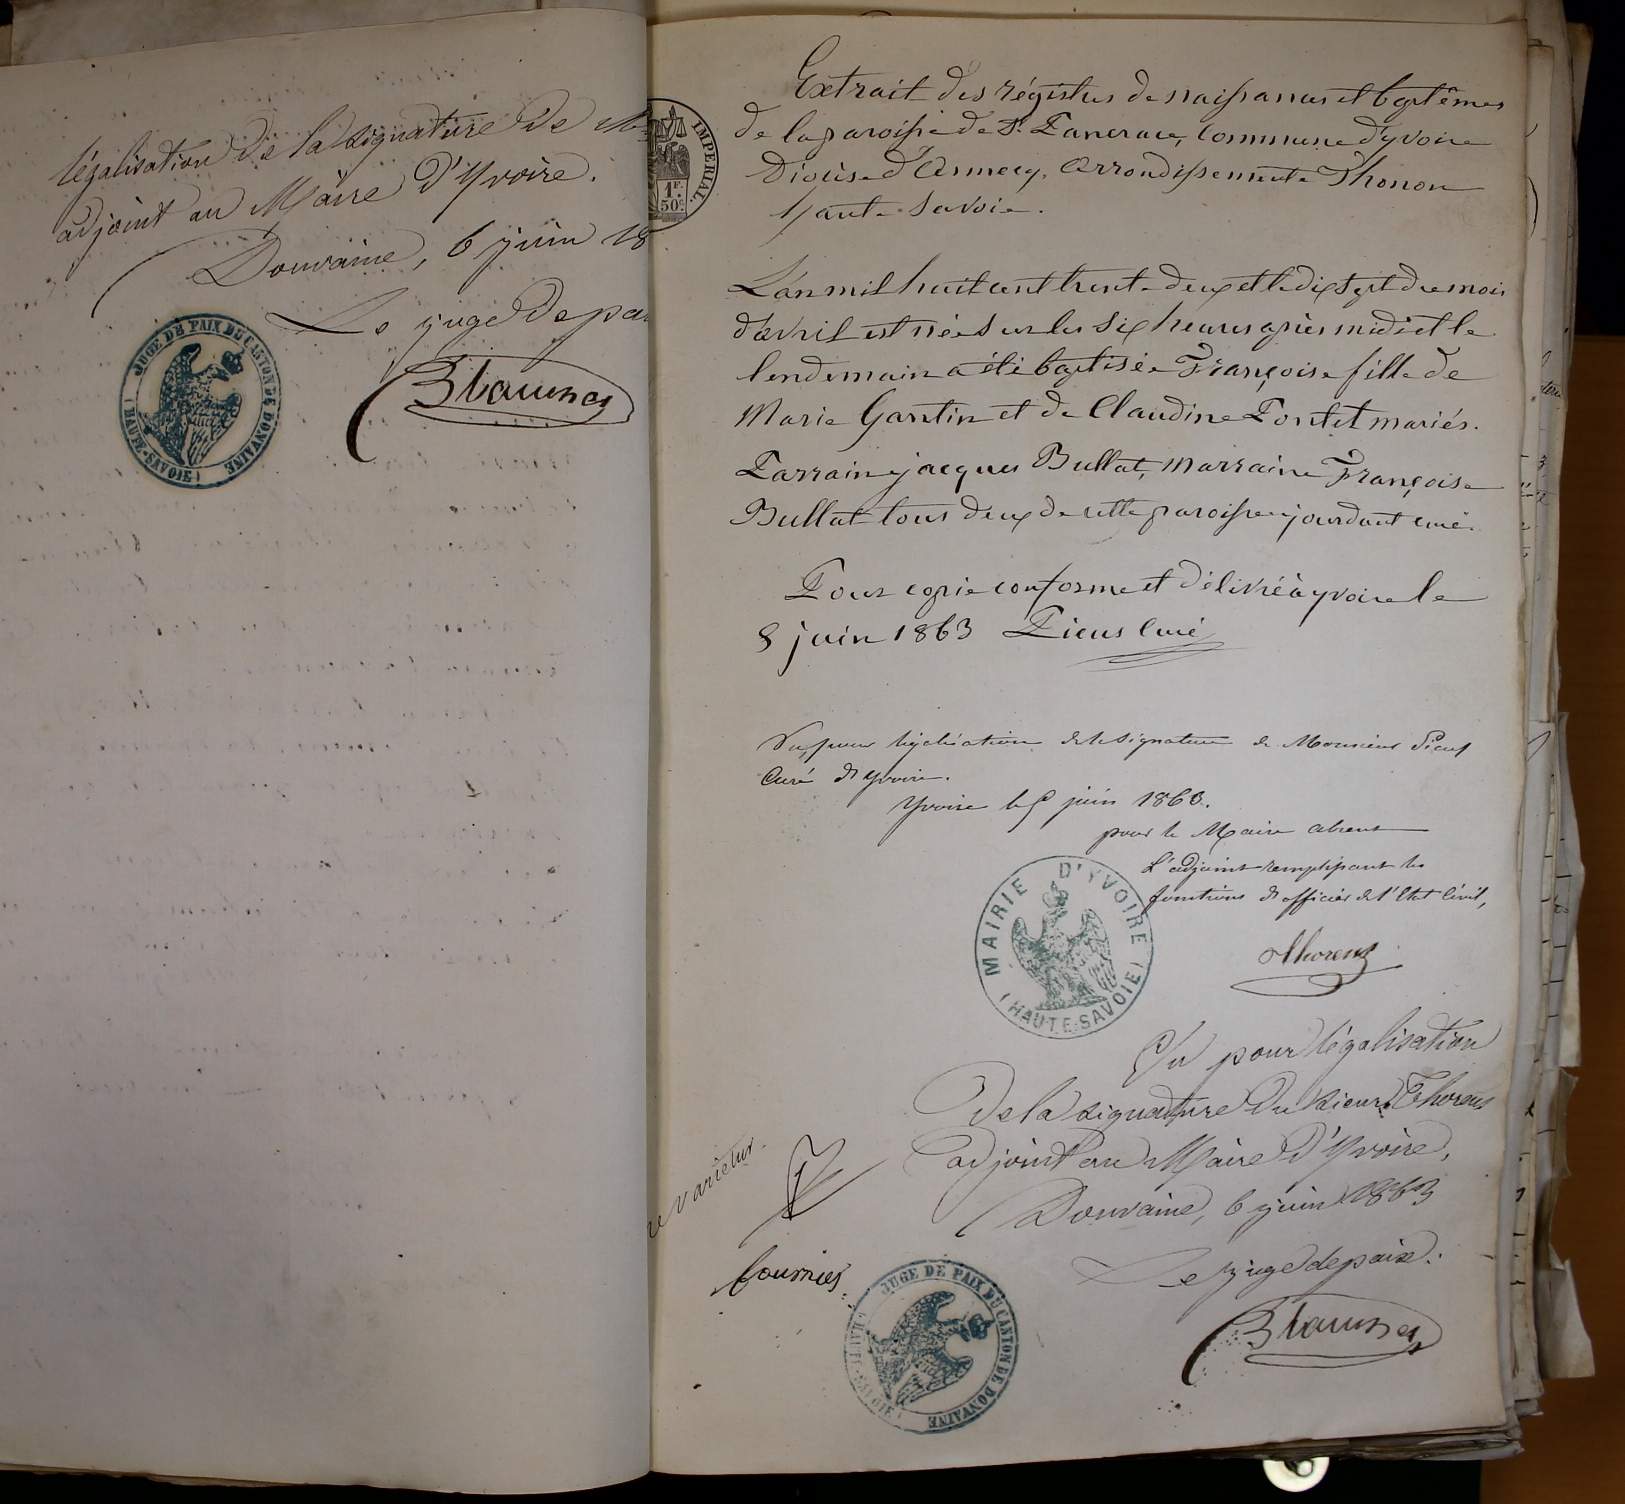 légalisation de la signature de M
adjoint au Maire d'Yvoire.
Douvaine, 6 juin 18
Le juge de pai
JUGE DE PAIX DU CANTON DE DONVAINE
(HAUTE-SAVOIE)
IMPERIAL.
1F.
50c.
Extrait des régistres de naissances et baptêmes
de la paroisse de St. Pancrace, Commune d'yvoire
Diocèse d'Annecy, Arrondissement Thonon
Haute-Savoie.
L'an mil huit cent trente-deux et le dix sept du mois
d'avril est née sur les six heures après midi et le
lendemain a été baptisée Françoise fille de
Marie Gantin et de Claudine Pontet mariés.
Parrain jacques Bullat, marraine Françoise
Bullat tous deux de cette paroisse jourdant curé.
Pour copie conforme et délivré à yvoire le
5 juin 1863 Picus Curé
Vu pour légalisation de la signature de Monsieur Picus
Curé d'yvoire.
Yvoire le 5 juin 1863.
pour le Maire absent
L'adjoint remplissant les
fonctions d'officier de l'Etat Civil,
Thorens
MAIRIE D'YVOIRE
(HAUTE-SAVOIE)
Vu pour légalisation
de la signature du sieur Thorens
adjoint au Maire d'Yvoire,
Douvaine, 6 juin 1863
Le juge de paix.
ne varietur
Fournier
JUGE DE PAIX DU CANTON DE DONVAINE
(HAUTE-SAVOIE)